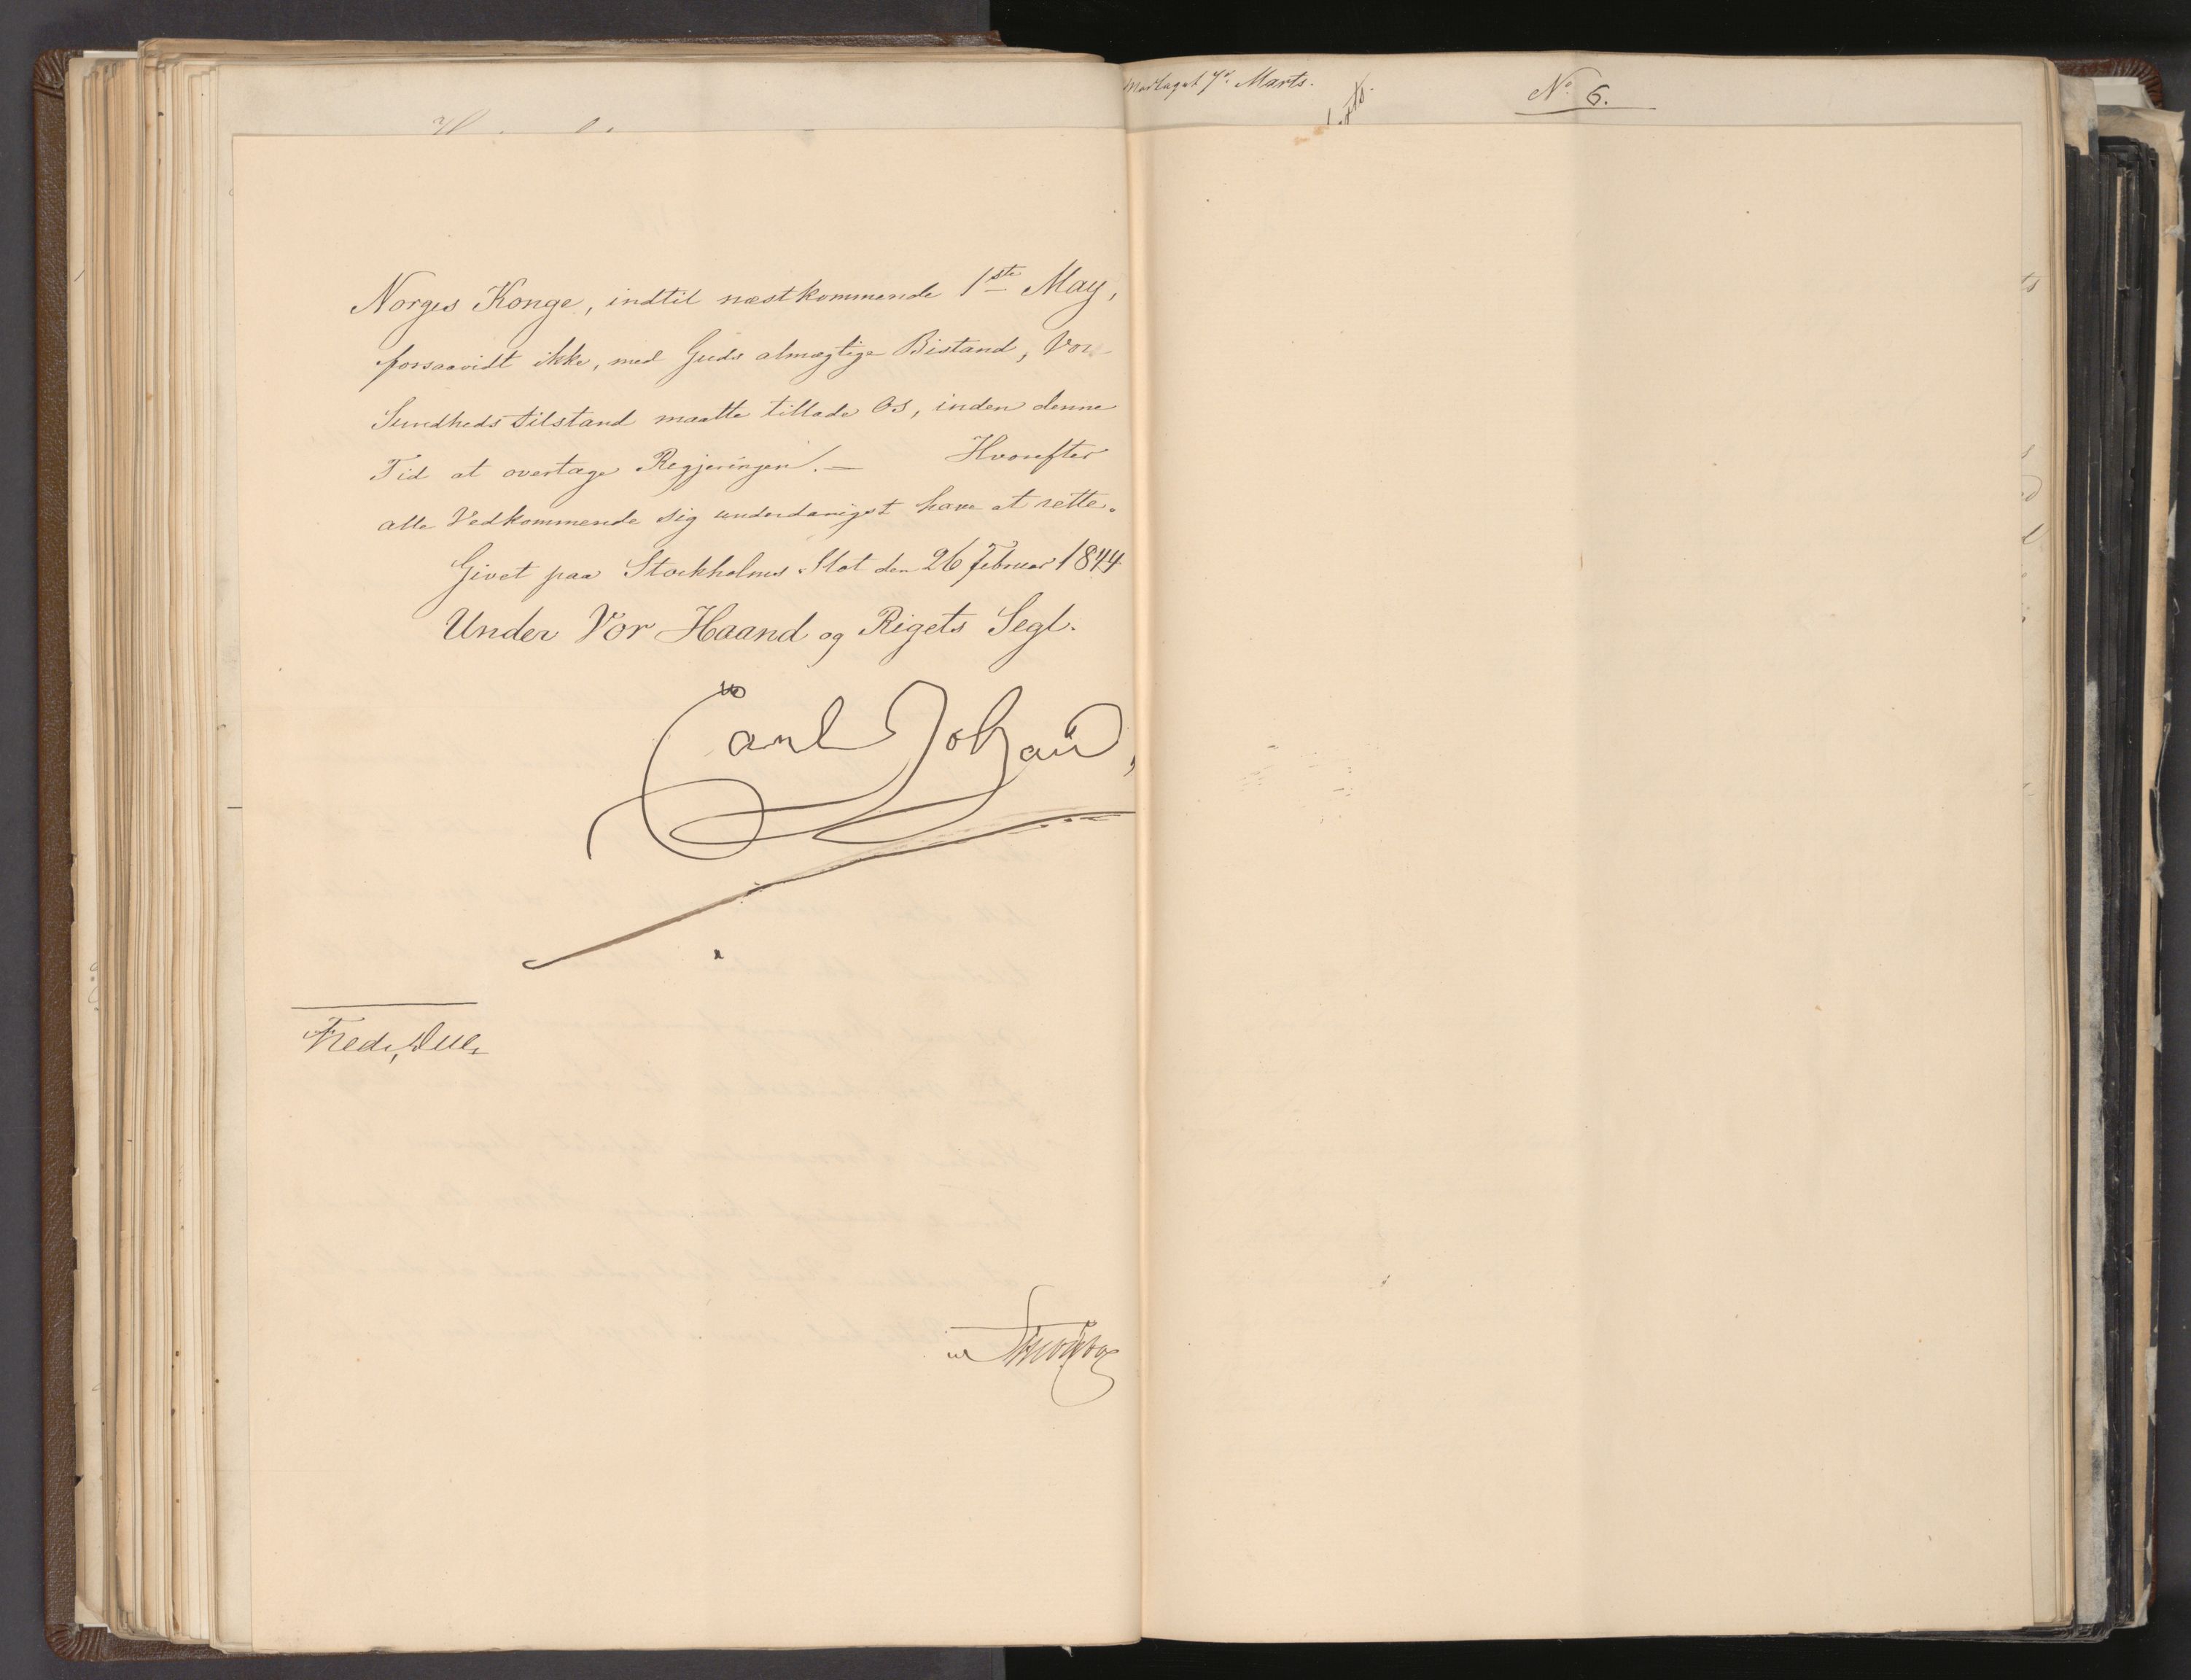 Norges Konge, indtil næstkommende 1ste May,
forsaavidt ikke, med Guds almægtige Bistand, Vor
Sundheds tilstand maatte tillade Os, inden denne
Tid at overtage Regjeringen. — Hvorefter
alle Vedkommende sig underdanigst have at rette.
Givet paa Stockholms Slot den 26 Februar 1844
Under Vor Haand og Rigets Segl.
Carl Johan
Fred. Due
Marts.
No 6.